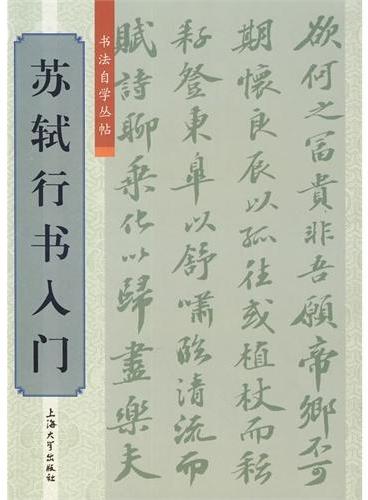 苏轼行书入门
书法自学丛帖
上海大学出版社
欲何之富貴非吾願帝鄉不可
期懷良辰以孤往或植杖而耘
耔登東皐以舒嘯臨清流而
賦詩聊乘化以歸盡樂夫